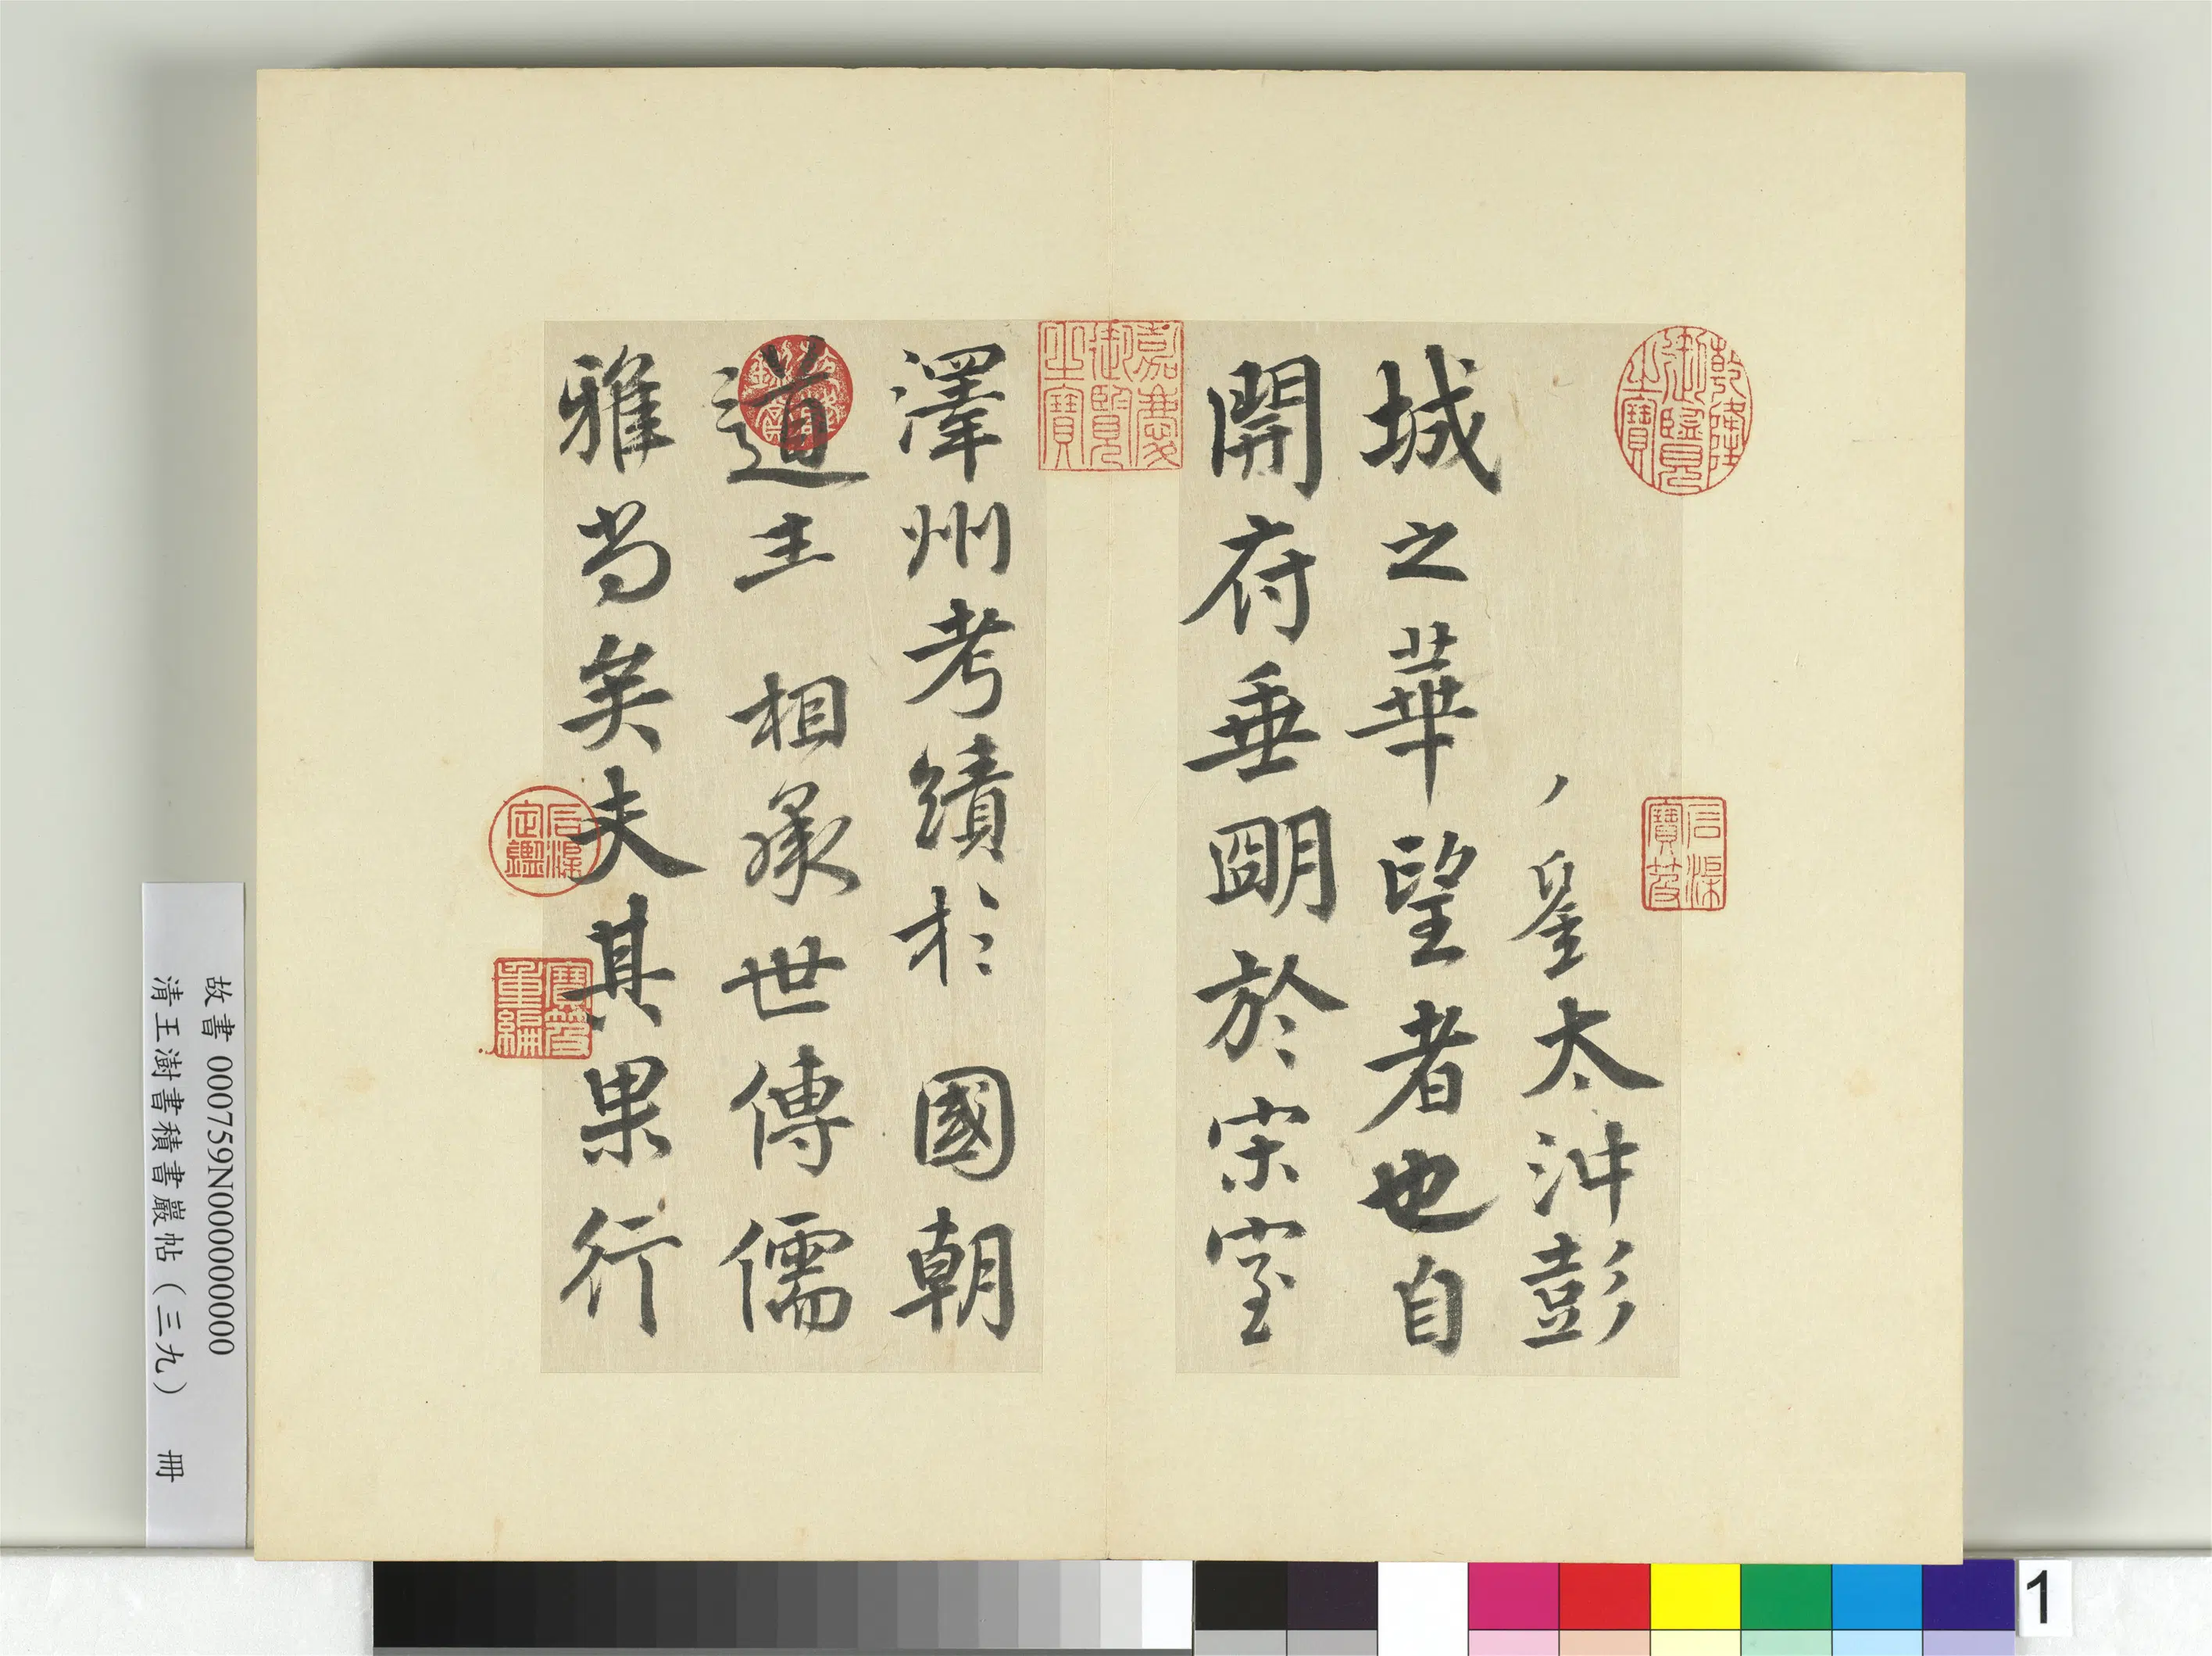 劉太沖彭
城之華望者也自
開府垂朙於宋室
澤州考績於國朝
道王相承世傳儒
雅尚矣夫其果行
乾隆御覽之寶
石渠寶笈
嘉慶御覽之寶
石渠定鑑
寶笈重編
故書 000759N000000000
清王澍書積書巖帖(三九) 冊
1